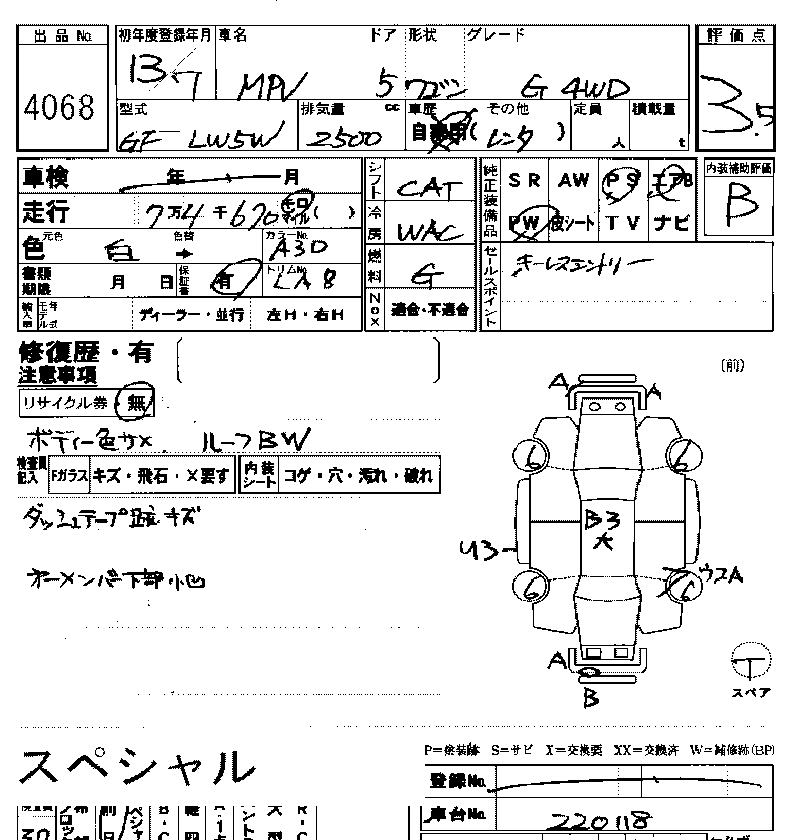 出品No. 初年度登録年月 車名 ドア 形状 グレード 評価点
4068 13 7 MPV 5 ワゴン G 4WD 3.5
型式 排気量 cc 車歴 その他 定員 積載量
GF LW5W 2500 自家用( レンタ ) 人 t
車検 年 月
走行 7万4千670 キロ マイル( )
色 元色 白 色替 → カラーNo. A3D
書類期限 月 日 保証書 有 トリムNo. LA8
輸入車 モデル年式 ディーラー・並行 左H・右H
シフト CAT
冷房 WAC
燃料 G
NOX 適合・不適合
純正装備品 SR AW PS エアB
PW 皮シート TV ナビ
内装補助評価
B
セールスポイント キーレスエントリー
修復歴・有
注意事項
リサイクル券・無
ボディー色サメ ルーフBW
検査員記入 Fガラス キズ・飛石・X要す 内装シート コゲ・穴・汚れ・破れ
ダッシュテープ跡 キズ
下部小凹
(前)
A A
6 6
B3
大
U3
6 6 ウスA
A
B
T
スペア
P=塗装跡 S=サビ X=交換要 XX=交換済 W=補修跡(BP)
スペシャル
登録No.
車台No. 220118